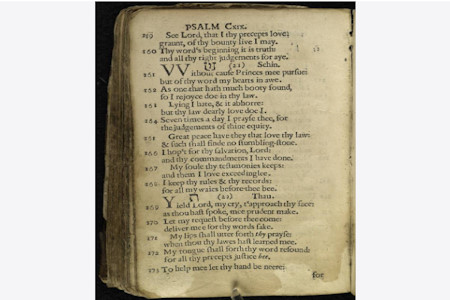 PSALM Cxix.
159 See Lord, that I thy precepts love;
graunt, of thy bounty live I may.
160 Thy word's beginning it is truth:
and all thy right judgements for aye.
ש (21) Schin.
161 WIthout cause Princes mee pursue:
but of thy word my hearts in awe.
162 As one that hath much booty found,
so I rejoyce doe in thy law.
163 Lying I hate, & it abhorre:
but thy law dearly love doe I.
164 Seven times a day I prayse thee, for
the judgements of thine equity.
165 Great peace have they that love thy law:
& such shall finde no stumbling-stone.
166 I hop't for thy salvation, Lord:
and thy commandments I have done.
167 My soule thy testimonies keeps:
and them I love exceedinglee.
168 I keep thy rules & thy records:
for all my waies before thee bee.
ת (22) Thau.
169 YIeld Lord, my cry, t'approach thy face:
as thou hast spoke, mee prudent make.
170 Let my request before thee come:
deliver mee for thy words sake.
171 My lips shall utter forth thy prayse:
when thou thy lawes hast learned mee.
172 My tongue shall forth thy word resound:
for all thy precepts justice bee.
173 To help mee let thy hand be neere:
for